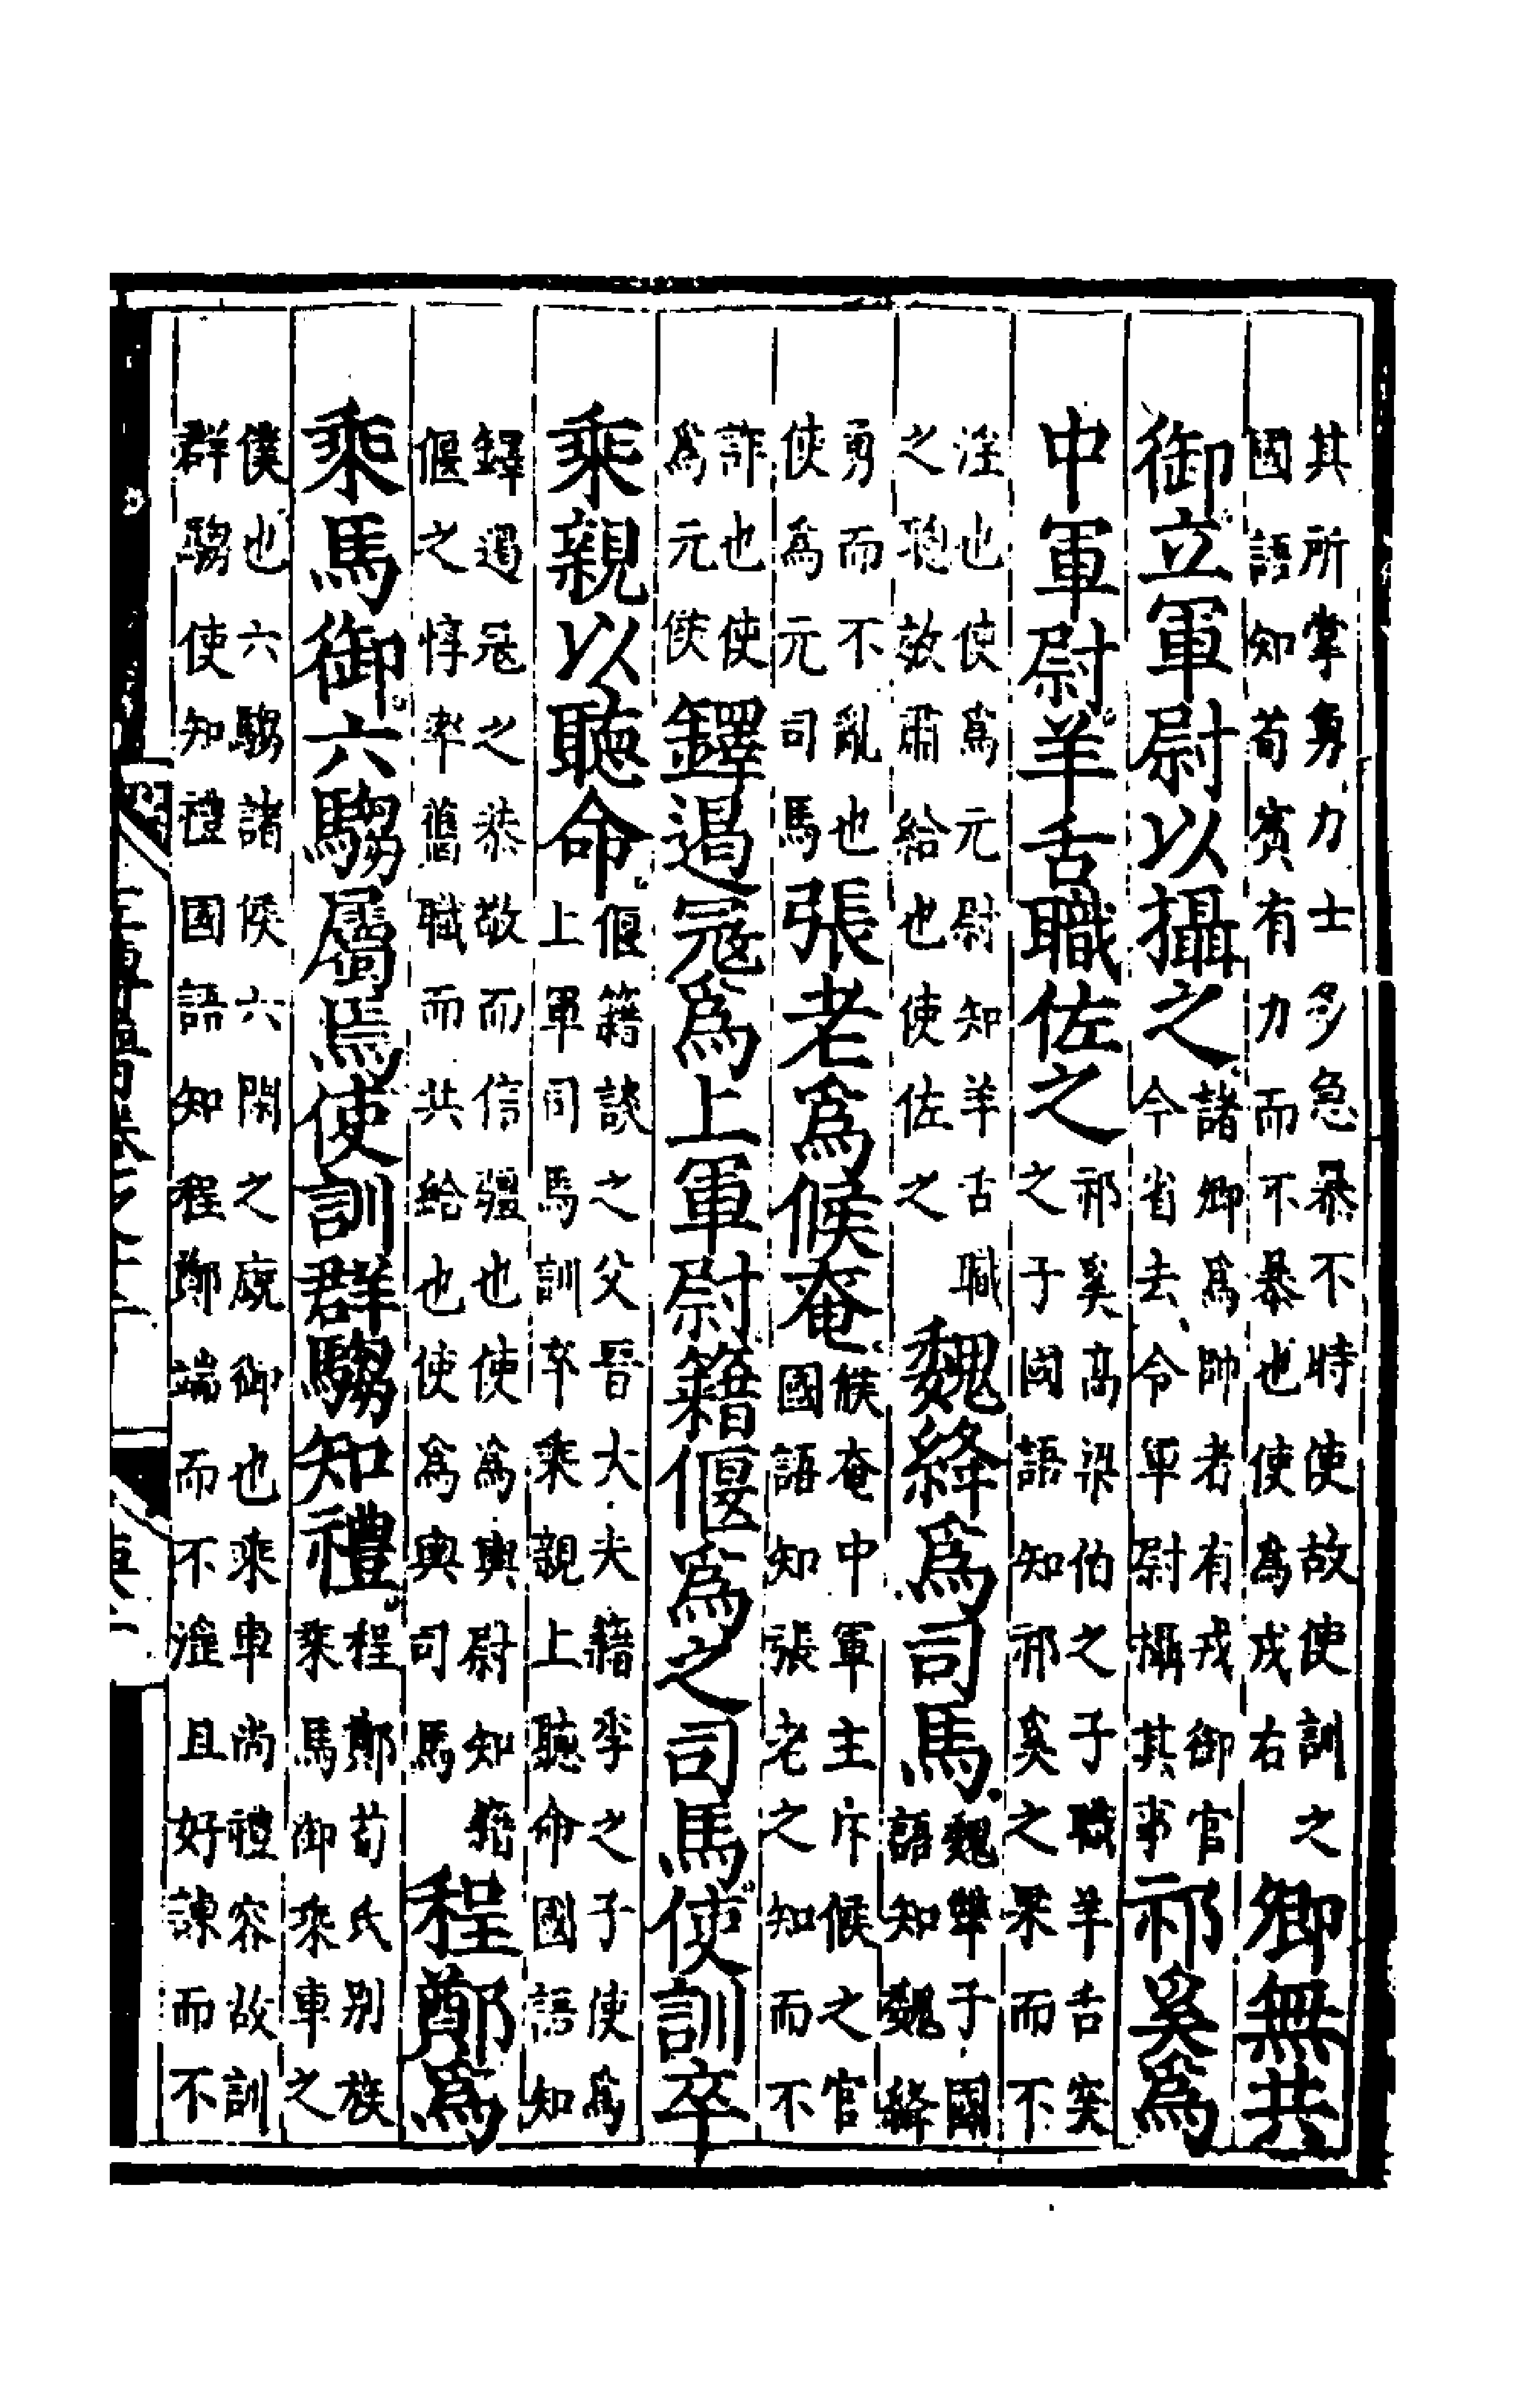 其所掌勇力士多急暴不時使故使訓之
國語知荀賓有力而不暴也使爲戎右
卿無共
御立軍尉以攝之
諸卿爲帥者有戎御官
今省去令軍尉攝其事
祁奚爲
中軍尉羊舌職佐之
祁奚高梁伯之子職羊舌突
之子國語知祁奚之果而不
淫也使爲元尉知羊舌職
之聰敏肅給也使佐之
魏絳爲司馬
魏犨子國
語知魏絳
勇而不亂也
使爲元司馬
張老爲候奄
候奄中軍主斥候之官
國語知張老之知而不
詐也使
爲元候
鐸遏寇爲上軍尉籍偃爲之司馬使訓卒
乘親以聽命
偃籍談之父晉大夫籍季之子使爲
上軍司馬訓卒乘親上聽命國語知
鐸遏寇之恭敬而信彊也使爲輿尉知籍
偃之惇率舊職而共給也使爲輿司馬
程鄭爲
乘馬御六騶屬焉使訓群騶知禮
程鄭荀氏別族
乘馬御乘車之
僕也六騶諸侯六閑之廄御也乘車尚禮容故訓
群騶使知禮國語知程鄭端而不淫且好諫而不